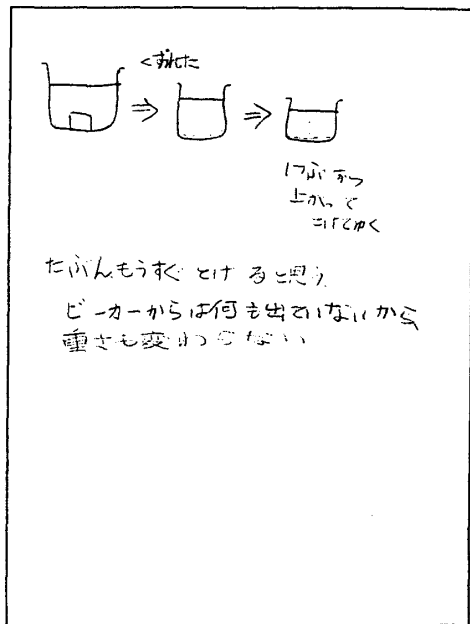 くずれた
1つぶずつ
上がって
とけてゆく
たぶんもうすぐとけると思う
ビーカーからは何も出ていないから
重さも変わらない